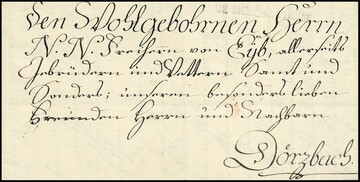 Den Wohlgebohrnen Herrn
N. N. Freiherrn von Eÿb, allerseits
Gebrüdern und Vettern Samt und
Sonders; unseren besonders lieben
Freunden Herrn und Nachbarn
Dörzbach.